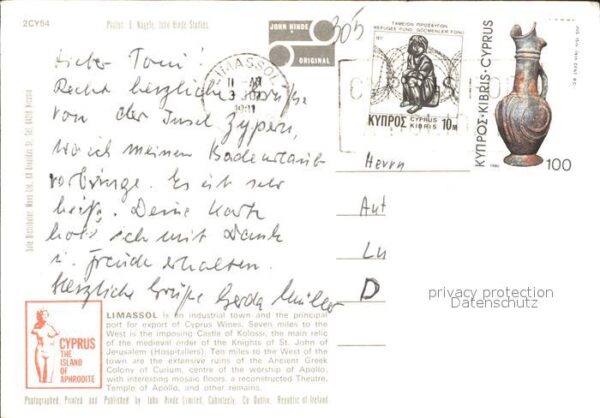 2CY54
Photo: E. Nägele, John Hinde Studios.
JOHN HINDE
ORIGINAL
305
Lieber Toni!
Recht herzliche Grüße
von der Insel Zypern,
wo ich meinen Badeurlaub
verbringe. Es ist sehr
heiß. Deine Karte
hab ich mit Dank
u. Freude erhalten.
Herzliche Grüße Gerda Müller
LIMASSOL
1981
ΤΑΜΕΙΟΝ ΠΡΟΣΦΥΓΩΝ
REFUGEE FUND GÖÇMENLER FONU
ΚΥΠΡΟΣ CYPRUS KIBRIS 10M
ΚΥΠΡΟΣ·KIBRIS·CYPRUS
1980
100
Herrn
Ant
Lu
D
privacy protection
Datenschutz
CYPRUS
THE
ISLAND
OF
APHRODITE
LIMASSOL is an industrial town and the principal
port for export of Cyprus Wines. Seven miles to the
West is the imposing Castle of Kolossi, the main relic
of the medieval order of the Knights of St. John of
Jerusalem (Hospitallers). Ten miles to the West of the
town are the extensive ruins of the Ancient Greek
Colony of Curium, centre of the worship of Apollo,
with interesting mosaic floors, a reconstructed Theatre,
Temple of Apollo, and other remains.
Photographed, Printed and Published by John Hinde Limited, Cabinteely, Co Dublin, Republic of Ireland.